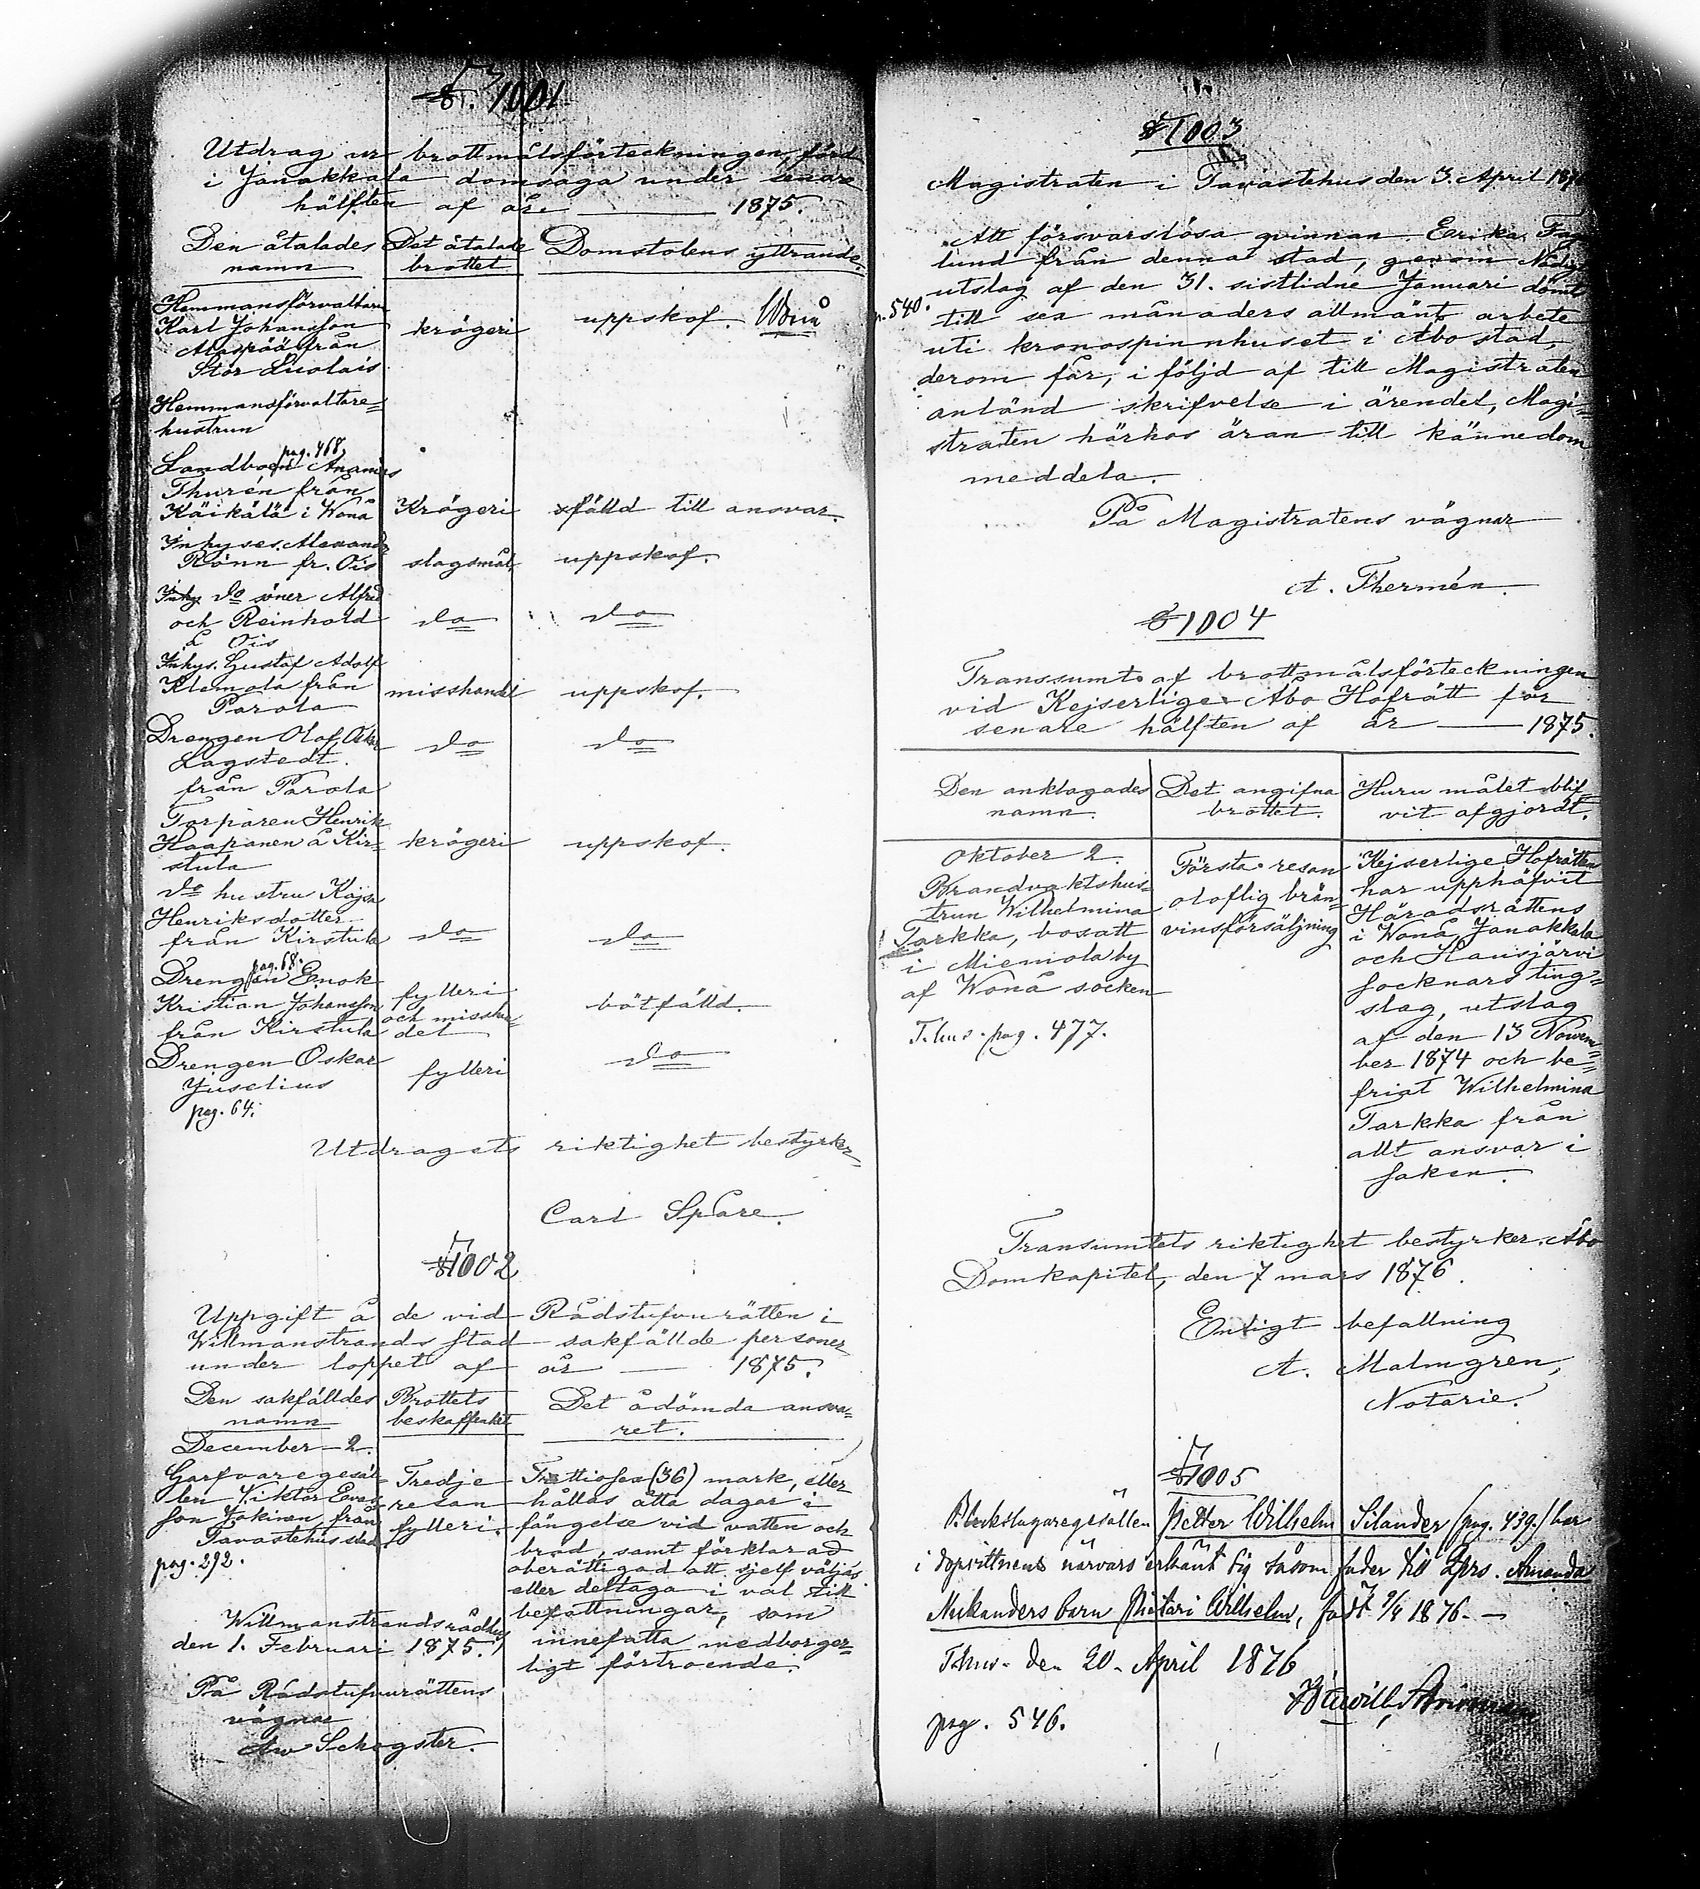 § 1001
Utdrag ur brottmålsförteckningen, förd
i Janakkala domsaga under senare
hälften af år 1875.
Den åtalades Det åtalade Domstolens yttrande.
namn brottet
Hemmansförvaltaren
Karl Johansson krögeri uppskof. Wånå
Alaspää från
Stor Luolais
Hemmansförvaltare=
hustrun
pag. 468
Landbon Ananias
Thurén från
Käikälä i Wånå Krögeri fälld till ansvar.
Inhyses. Alexander
Rönn fr. Ois slagsmål uppskof.
do söner Alfred
och Reinhold do do
å Ois
Inhys. Gustaf Adolf
Klemola från misshandel uppskof.
Parola
Drengen Olof Oskar
Lagstedt. do do
från Parola
Torparen Henrik
Haapanen å Kir= krögeri uppskof.
stula
do hustru Kajsa
Henriksdotter
från Kirstula do do
pag. 68.
Drengen Enok
Kristian Johansson fylleri
från Kirstula och misshan= bötfälld.
det
Drengen Oskar do
Juselius fylleri
pag. 64.
Utdragets riktighet bestyrker
Carl Spåre.
§ 1002
Uppgift å de vid Rådstufvurätten i
Willmanstrands stad sakfällde personer
under loppet af år 1875.
Den sakfälldes Brottets Det ådömda ansva=
namn beskaffenhet ret.
December 2.
Garfvaregesäl= Tredje Trettiosex (36) mark, eller
len Viktor Evas= resan hållas åtta dagar i
son Jokinen från fylleri. fängelse vid vatten och
Tavastehus stad bröd, samt förklarad
pag. 292. oberättigad att sjelf väljas
eller deltaga i val till
befattningar, som
innefatta medborger=
ligt förtroende.
Willmanstrands rådhus
den 1. Februari 1875.
På Rådstufvurättens
vägnar
§ 1003
Magistraten i Tavastehus den 3. April 1876
Att försvarslösa qvinnan Erika Fag
lund från denna stad, genom
utslag af den 31. sistlidne Januari dömt
540. till sex månaders allmänt arbete
uti kronospinnhuset i Åbo stad,
derom får, i följd af till Magistraten
anländ skrifvelse i ärendet, Magi=
straten härhos äran till kännedom
meddela.
På Magistratens vägnar
A. Thermén.
§ 1004
Transsumt af brottmålsförteckningen
vid Kejserliga Åbo Hofrätt för
senare hälften af år 1875.
Den anklagades Det angifna Huru målet blif=
namn. brottet. vit afgjordt.
Oktober 2. Första resan Kejserlige Hofrätten
Brandvaktshus= olaflig brän= har upphäfvit
trun Wilhelmina vinsförsäljning Häradsrättens
Tarkka, bosatt i Wånå, Janakkala
i Miemola by och Hausjärvi
af Wånå socken socknars ting=
T.hus. pag. 477. slag, utslag
af den 13 Novem=
ber 1874 och be=
friat Wilhelmina
Tarkka från
allt ansvar i
saken.
Transumtets riktighet bestyrker. Åbo
Domkapitel, den 7 mars 1876.
Enligt befallning
A. Malmgren,
Notarie.
§ 1005
Blekslagaregesällen Petter Wilhelm Silander (pag. 439.) har
i närvaro erkänt sig såsom fader till Amanda
barn Wilhelm, född 9/4 1876.
T.hus den 20 April 1876
pag. 546.